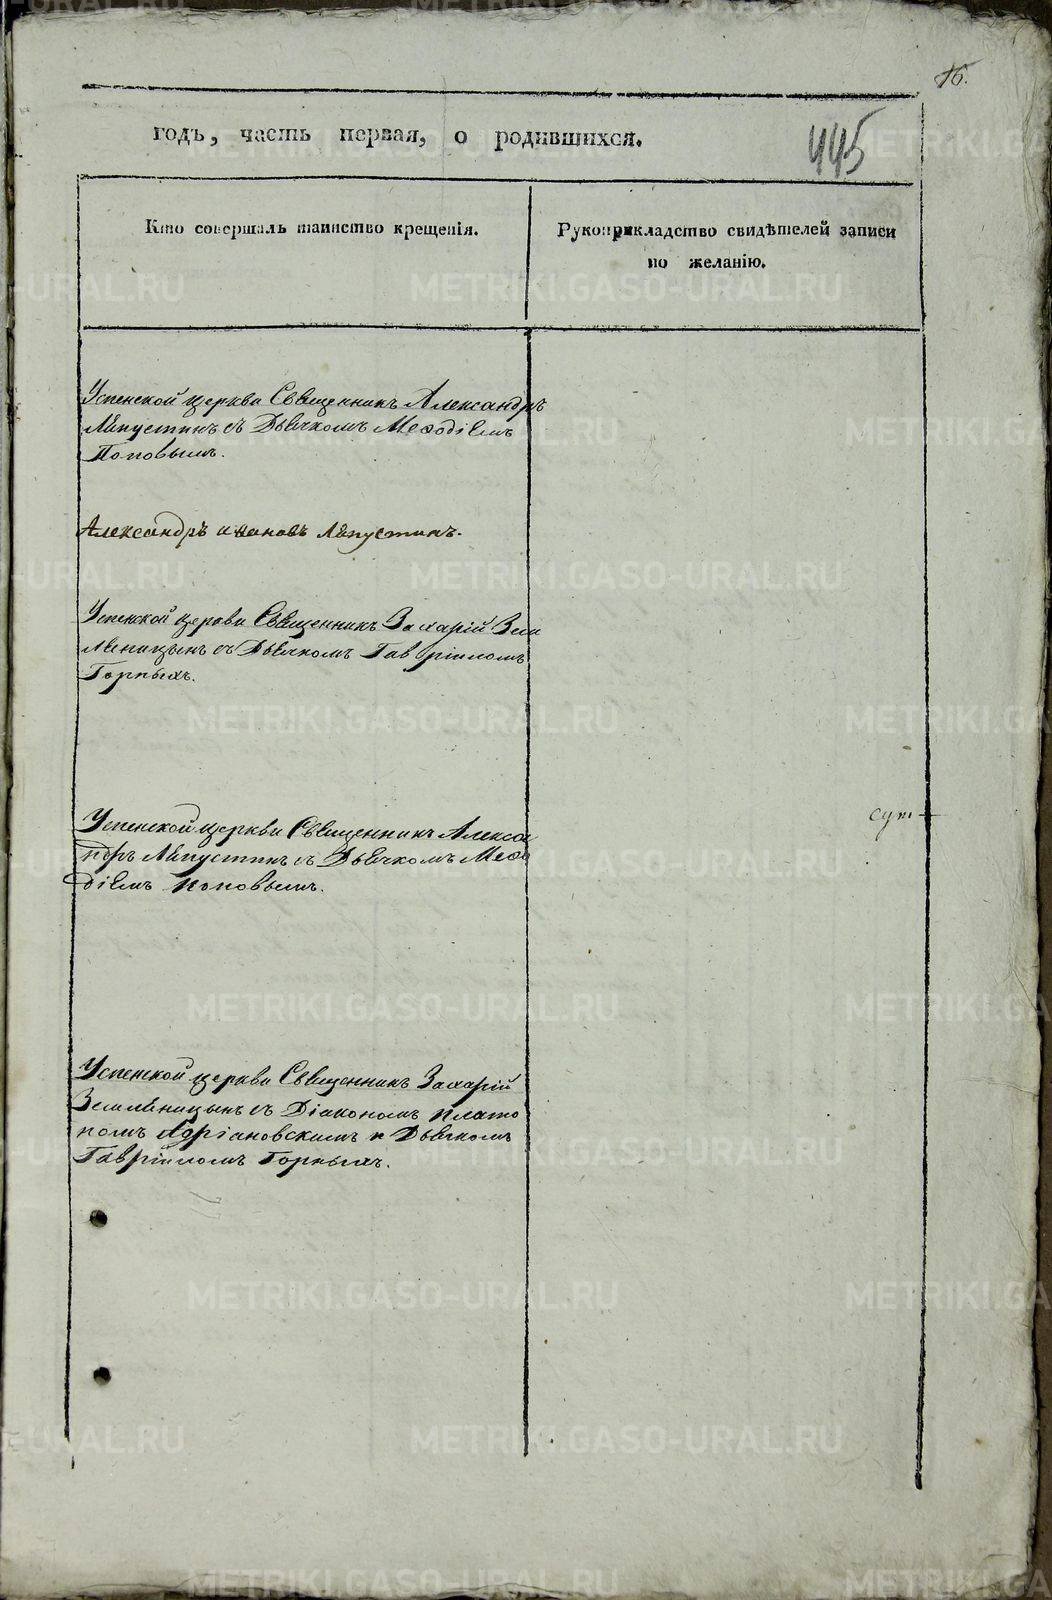 16.
годъ, часть первая, о родившихся.
445
Кто совершалъ таинство крещенія.
Рукоприкладство свидѣтелей записи
по желанію.
Успенской церкви Священникъ Александръ
Ляпустинъ съ Дьячкомъ Меѳодіемъ
Поповымъ.
Александръ Ивановъ Ляпустинъ.
Успенской церкви Священникъ Захарій Земля
ницынъ съ Дьячкомъ Гавріиломъ
Горныхъ.
Успенской церкви Священникъ Алекса
ндръ Ляпустинъ съ Дьячкомъ Меѳо
діемъ Поповымъ.
Успенской церкви Священникъ Захарій
Земляницынъ съ Діакономъ Плато
номъ Адріановскимъ и Дьячкомъ
Гавріиломъ Горныхъ.
METRIKI.GASO-URAL.RU